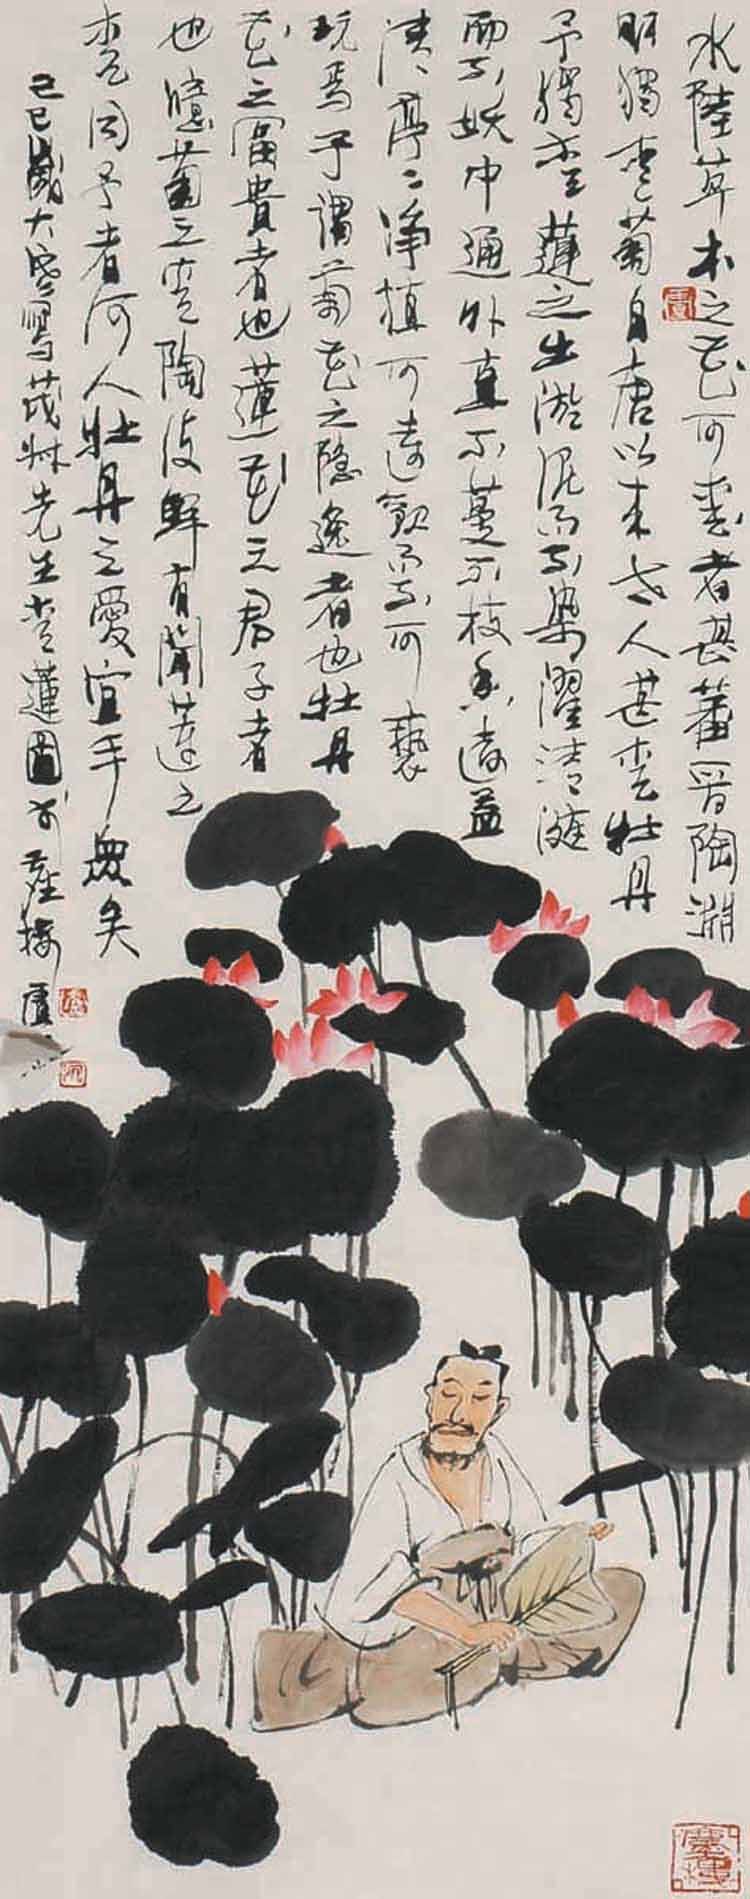 水陸草木之花可愛者甚蕃晉陶淵
明獨愛菊自唐以來世人甚愛牡丹
予獨愛蓮之出淤泥而不染濯清漣
而不妖中通外直不蔓不枝香遠益
清亭〻淨植可遠觀而不可褻
玩焉予謂菊花之隱逸者也牡丹
花之富貴者也蓮花之君子者
也噫菊之愛陶後鮮有聞蓮之
愛同予者何人牡丹之愛宜乎眾矣
己巳歲大寒寫茂叔先生愛蓮圖於